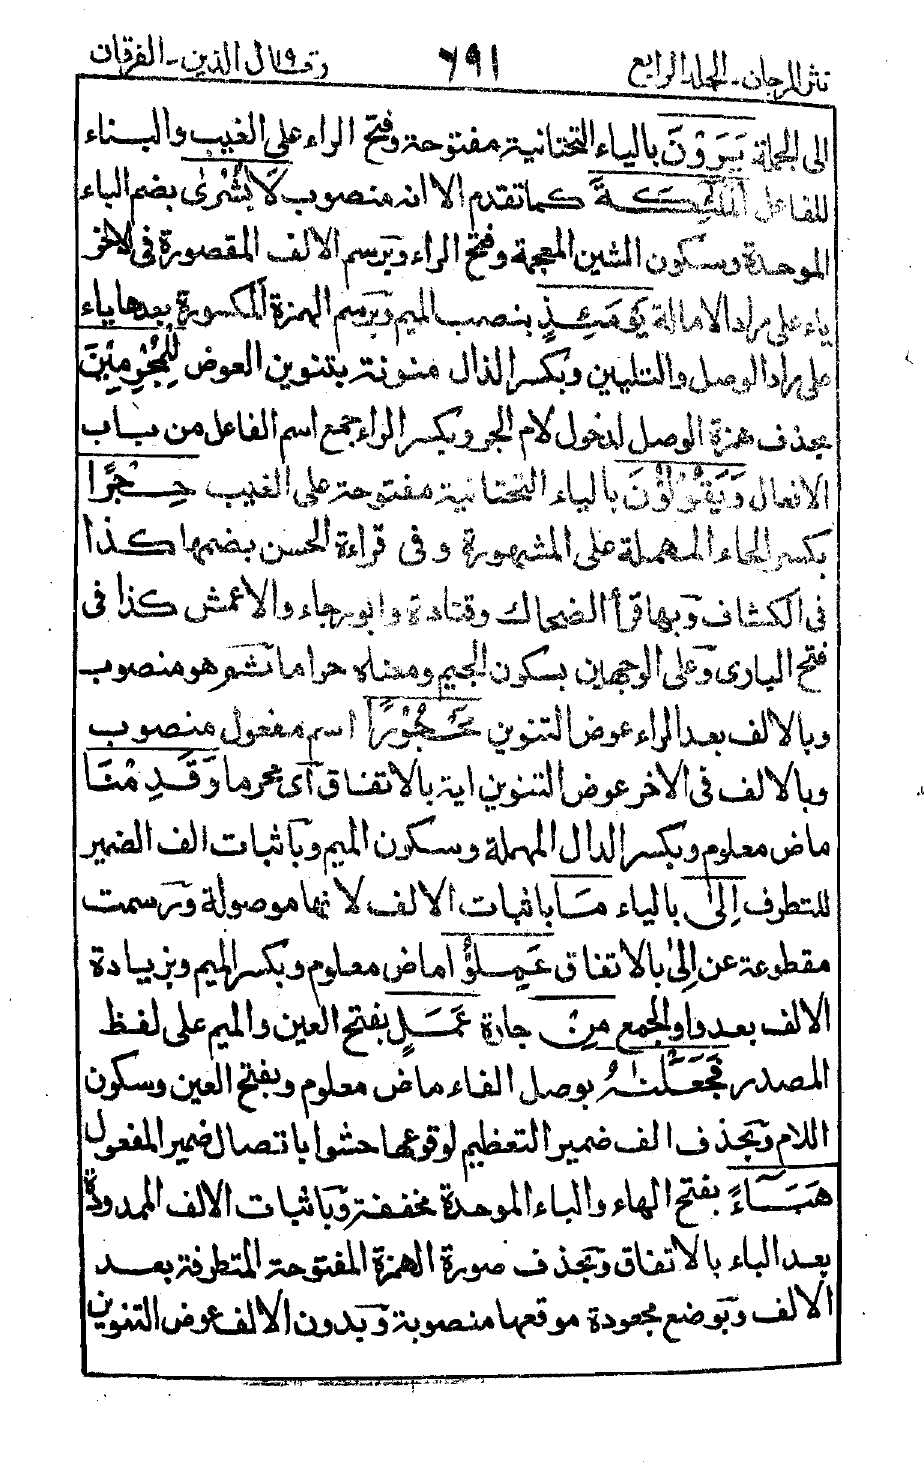 نثر المرجان - الجلد الرابع ٦٩١ وقال الذين - الفرقان
الى الجملة يَرَوْنَ بالياء التحتانية مفتوحة وفتح الراء على الغيب والبناء
للفاعل الْمَلٰٓئِكَةَ كما تقدم الا انه منصوب لَا بُشْرٰى بضم الباء
الموحدة وسكون الشين المعجمة وفتح الراء ويرسم الالف المقصورة فى الاخر
ياء على مراد الامالة يَوْمَئِذٍ بنصب الميم ويرسم الهمزة المكسورة بعدها ياء
على مراد الوصل والتليين وبكسر الذال منونة بتنوين العوض لِّلْمُجْرِمِيْنَ
بحذف همزة الوصل لدخول لام الجر وبكسر الراء جمع اسم الفاعل من باب
الافعال وَيَقُوْلُوْنَ بالياء التحتانية مفتوحة على الغيب حِجْرًا
بكسر الحاء المهملة على المشهورة وفى قراءة الحسن بضمها كذا
فى الكشاف وبها قرأ الضحاك وقتادة وابو رجاء والاعمش كذا فى
فتح البارى وعلى الوجهين بسكون الجيم ومعناه حراما ثم هو منصوب
وبالالف بعد الراء عوض التنوين مَّحْجُوْرًا اسم مفعول منصوب
وبالالف فى الاخر عوض التنوين اية بالاتفاق اى محرما وَقَدِمْنَا
ماض معلوم وبكسر الدال المهملة وسكون الميم وباثبات الف الضمير
للتطرف اِلٰى بالياء مَا باثبات الالف لانها موصولة ورسمت
مقطوعة عن اِلٰى بالاتفاق عَمِلُوْا ماض معلوم وبكسر الميم وبزيادة
الالف بعد واو الجمع مِنْ جارة عَمَلٍ بفتح العين والميم على لفظ
المصدر فَجَعَلْنٰهُ بوصل الفاء ماض معلوم وبفتح العين وسكون
اللام وبحذف الف ضمير التعظيم لوقوعها حشوا باتصال ضمير المفعول
هَبَآءً بفتح الهاء والباء الموحدة مخففة وباثبات الالف الممدودة
بعد الباء بالاتفاق وبحذف صورة الهمزة المفتوحة المتطرفة بعد
الالف وبوضع مجعودة موقعها منصوبة وبدون الالف عوض التنوين